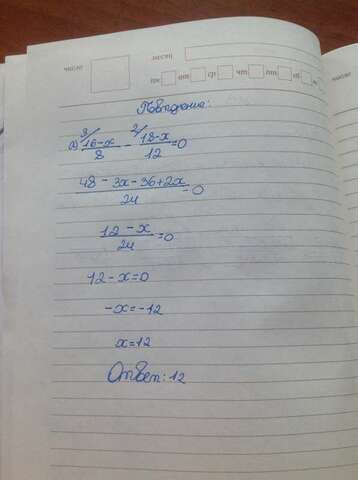 число
месяц
пн вт ср чт пт сб
число
а) 3/ 16-x/8 - 2/ 18-x/12 =0
48 - 3x - 36+2x/24 =0
12 - x/24 =0
12 - x=0
-x=-12
x=12
Ответ: 12